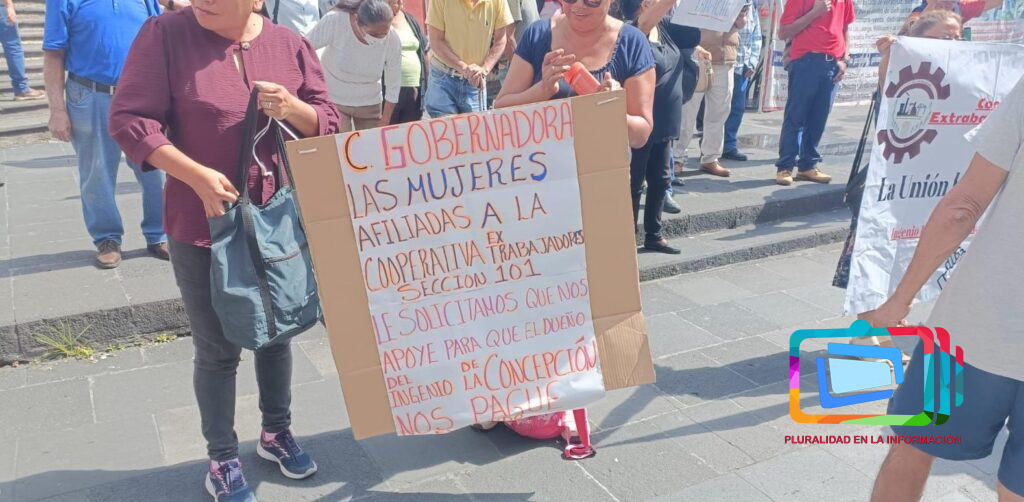 C. GOBERNADORA
LAS MUJERES
AFILIADAS A LA
COOPERATIVA EX TRABAJADORES
SECCION 101
LE SOLICITAMOS QUE NOS
APOYE PARA QUE EL DUEÑO
DEL INGENIO DE LA CONCEPCIÓN
NOS PAGUE
Extraba
La Unión
Ingenio
PLURALIDAD EN LA INFORMACIÓN